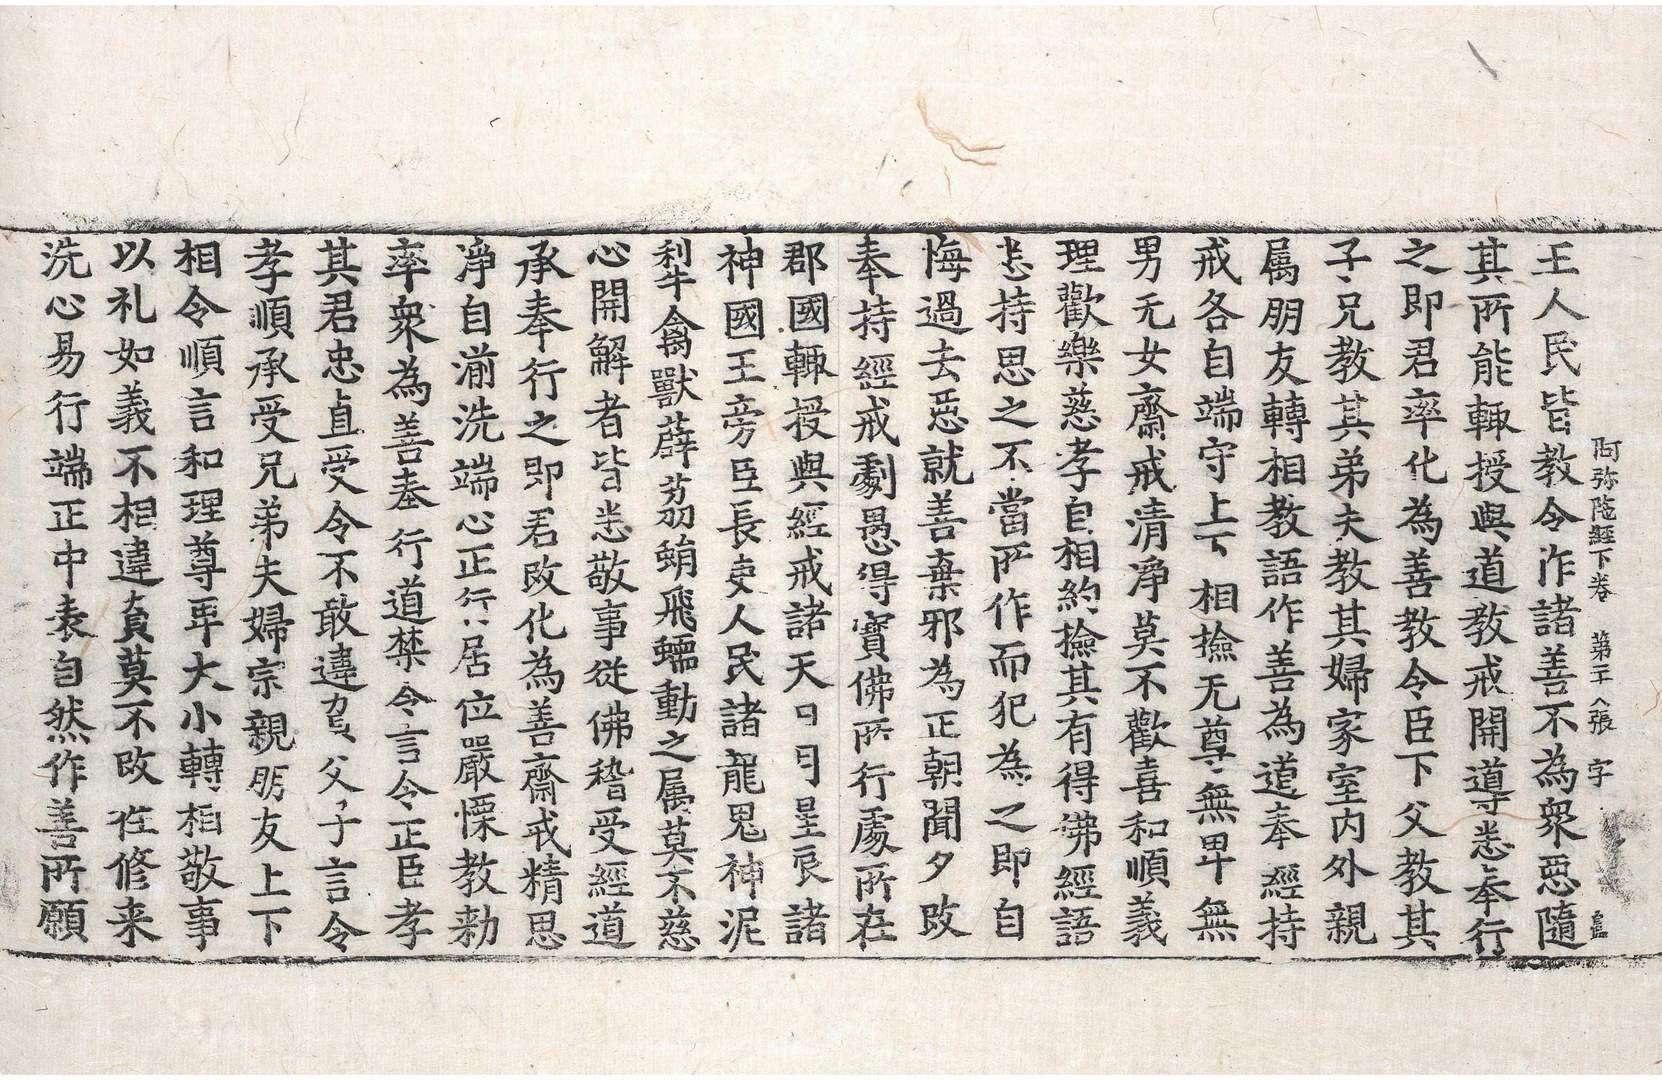 阿弥陁經下卷 第五八張 字
王人民皆教令作諸善不為衆惡隨
其所能輙授與道教戒開導悉奉行
之即君率化為善教令臣下父教其
子兄教其弟夫教其婦家室内外親
属朋友轉相教語作善為道奉經持
戒各自端守上下相撿无尊無卑無
男无女齋戒清淨莫不歡喜和順義
理歡樂慈孝自相約撿其有得佛經語
悉持思之不當所作而犯為之即自
悔過去惡就善棄邪為正朝聞夕改
奉持經戒劇愚得寶佛所行處所在
郡國輙授與經戒諸天日月星辰諸
神國王旁臣長吏人民諸龍鬼神泥
利牛禽獸薜荔蜎飛蠕動之属莫不慈
心開解者皆悉敬事從佛稽受經道
承奉行之即君改化為善齋戒精思
淨自湔洗端心正行居位嚴慄教勑
率衆為善奉行道禁令言令正臣孝
其君忠直受令不敢違負父子言令
孝順承受兄弟夫婦宗親朋友上下
相令順言和理尊卑大小轉相敬事
以礼如義不相違負莫不改徃修来
洗心易行端正中表自然作善所願